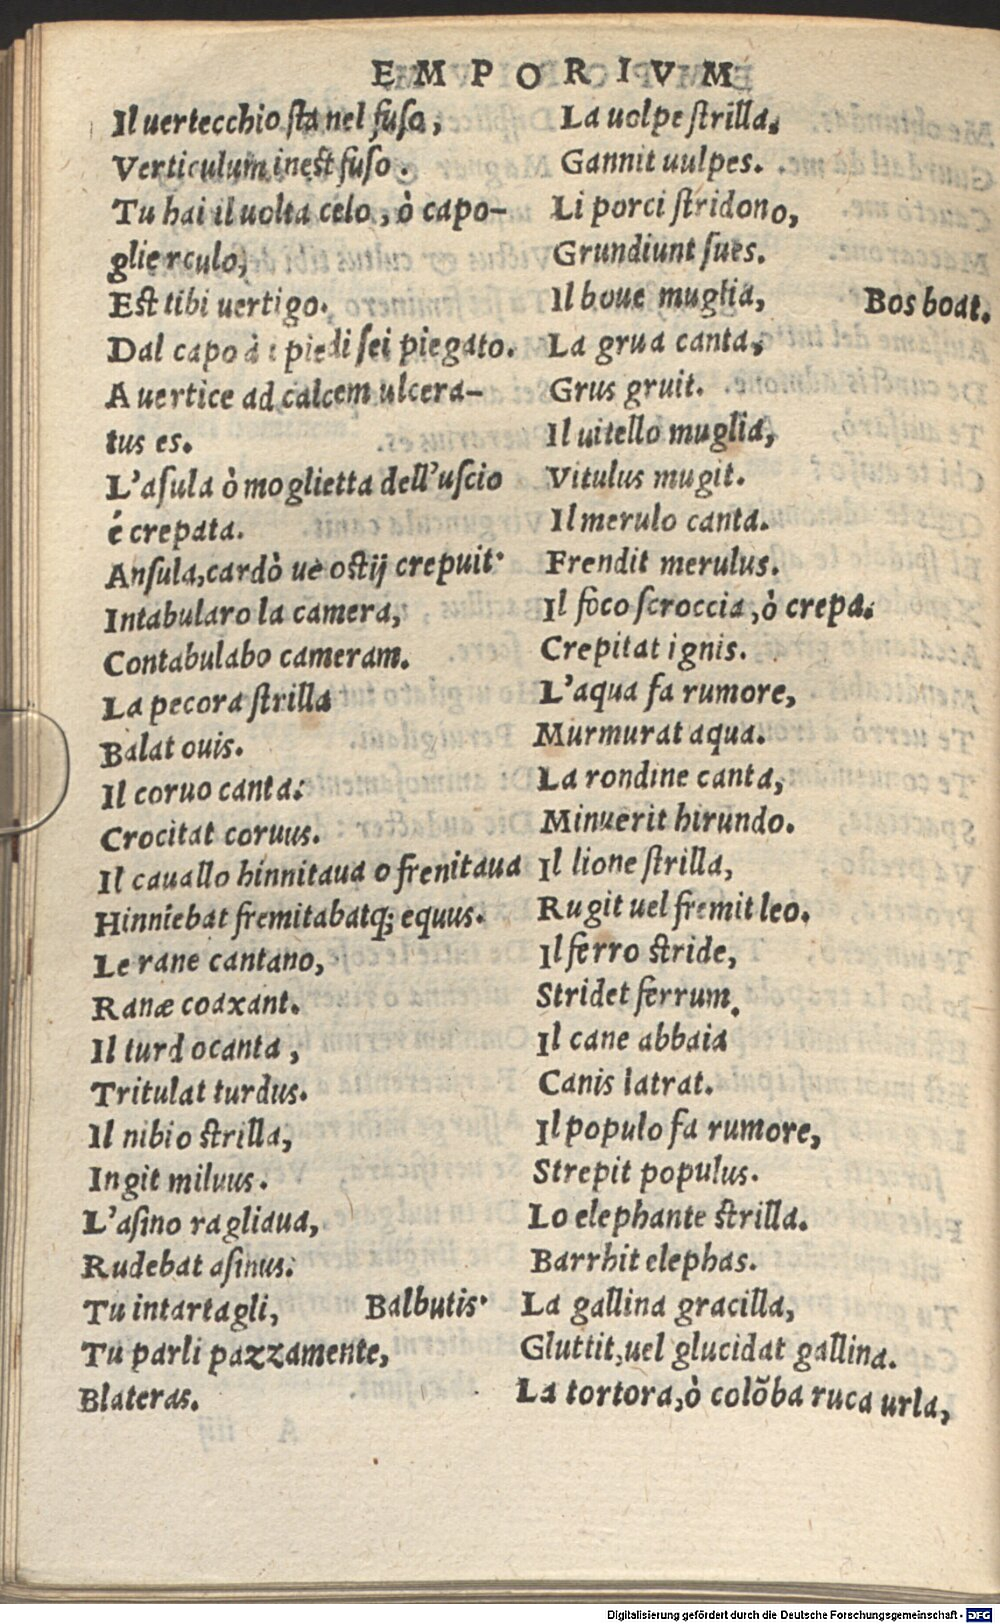 EMPORIVM
Il uertecchio sta nel fuso,
Verticulum inest fuso.
Tu hai il uolta celo, ò capo-
glierculo,
Est tibi uertigo.
Dal capo à i piedi sei piegato.
A uertice ad calcem ulcera-
tus es.
L'asula ò moglietta dell'uscio
é crepata.
Ansula, cardò ue ostij crepuit.
Intabularo la camera,
Contabulabo cameram.
La pecora strilla
Balat ouis.
Il coruo canta:
Crocitat coruus.
Il cauallo hinnitaua o frenitaua
Hinniebat fremitabatq; equus.
Le rane cantano,
Ranæ coaxant.
Il turdo canta,
Tritulat turdus.
Il nibio strilla,
Ingit miluus.
L'asino ragliaua,
Rudebat asinus:
Tu intartagli, Balbutis.
Tu parli pazzamente,
Blateras.
La uolpe strilla,
Gannit uulpes.
Li porci stridono,
Grundiunt sues.
Il boue muglia, Bos boat.
La grua canta,
Grus gruit.
Il uitello muglia,
Vitulus mugit.
Il merulo canta.
Frendit merulus.
Il foco scroccia, ò crepa.
Crepitat ignis.
L'aqua fa rumore,
Murmurat aqua.
La rondine canta,
Minuerit hirundo.
Il lione strilla,
Rugit uel fremit leo.
Il ferro stride,
Stridet ferrum.
Il cane abbaia
Canis latrat.
Il populo fa rumore,
Strepit populus.
Lo elephante strilla.
Barrhit elephas.
La gallina gracilla,
Gluttit, uel glucidat gallina.
La tortora, ò colõba ruca urla,
Digitalisierung gefördert durch die Deutsche Forschungsgemeinschaft - DFG